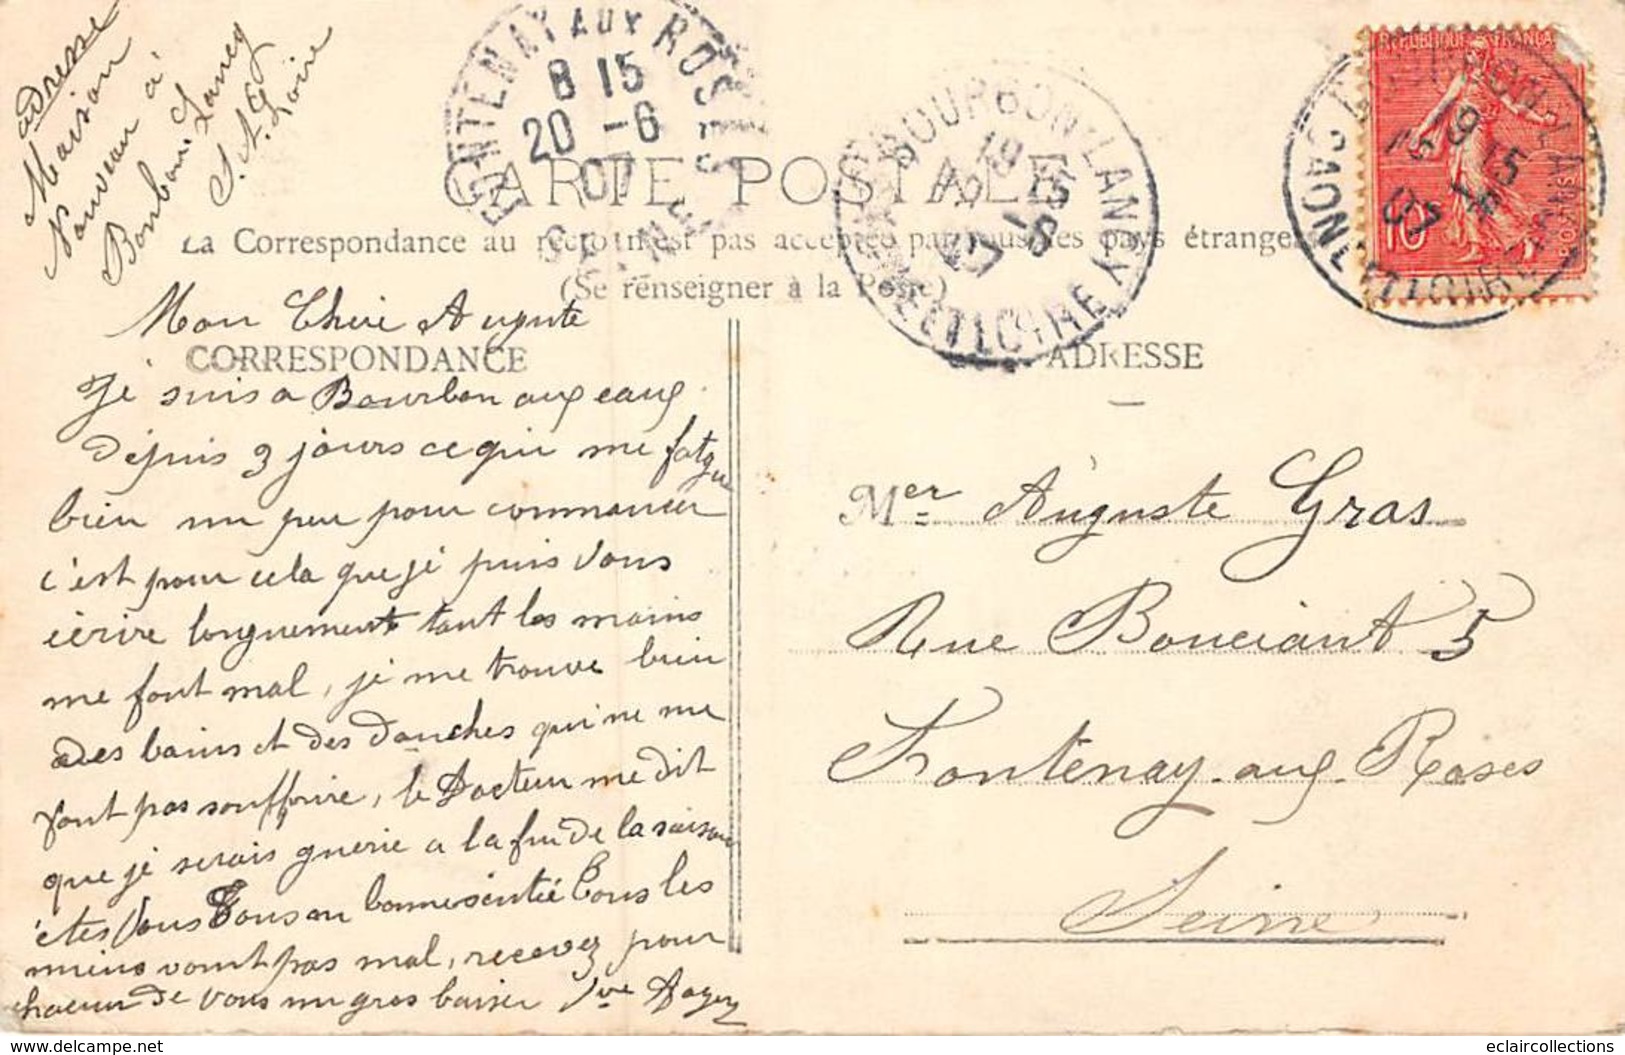 adresse
Maison
à
Bourbon Lancy
S. et Loire
FONTENAY AUX ROSES
8 15
20 -6
07
SEINE
BOURBON-LANCY
SAONE-ET-LOIRE
REPUBLIQUE FRANÇAISE
10
POSTES
CARTE POSTALE
La Correspondance au recto n'est pas acceptée par tous les pays étrangers
(Se renseigner à la Poste)
CORRESPONDANCE
ADRESSE
Mon Chere Auguste
Je suis a Bourbon aux eaux
depuis 3 jours ce qui me fatgue
bien un peu pour commancer
c'est pour cela que je puis Vous
écrire longuement tant les mains
me font mal, je me trouve bien
des bains et des douches qui ne me
font pas souffrire, le Docteur me dit
que je serais guerie a la fin de la saison
étes Vous Tous en bonne sentée tous les
miens vont pas mal, recevez pour
chacun de vous un gros baiser Vve
Mer Auguste Gras
Rue Bouciant 5
Fontenay-aux-Roses
Seine
eclaircollections.eclaircollections.com